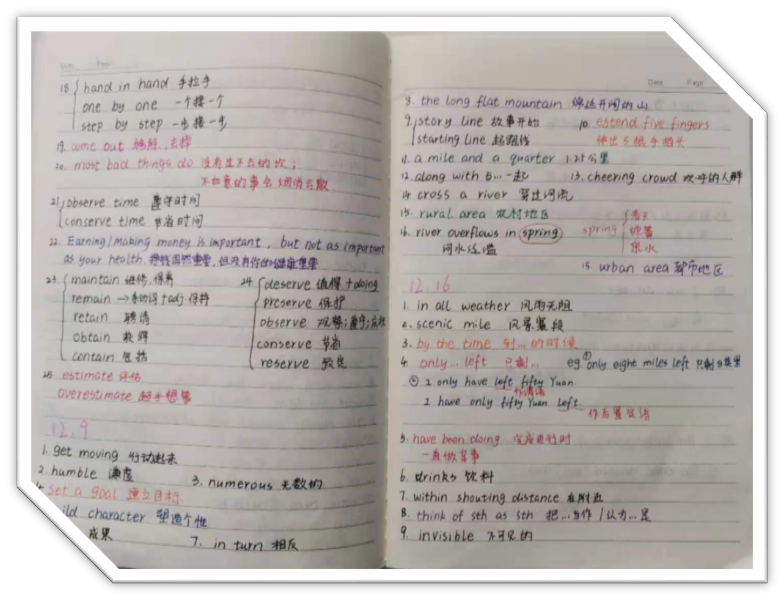 Date Page
18. hand in hand 手拉手
one by one 一个接一个
step by step 一步接一步
19. come out
20. most bad things do 没有过不去的坎;
不如意的事会烟消云散
21. observe time 遵守时间
conserve time 节省时间
22. Earning/making money is important, but not as important
as your health
23. maintain 维修,保养
remain → 系动词+adj 保持
retain 聘请
obtain 获得
contain 包括
24. deserve 值得 + doing
preserve 保护
observe 观察;遵守;庆祝
conserve 节省
reserve 预定
25. estimate 评估
overestimate
12.9
1. get moving 行动起来
2. humble 谦虚
3. numerous 无数的
set a goal 建立目标
ild character 塑造个性
成果
7. in turn 相反
Date Page
8. the long flat mountain 绵延开阔的山
9. story line 故事开始
starting line 起跑线
10. estend five fingers
伸出5根手指头
11. a mile and a quarter 1.25公里
12. along with s… 一起
13. cheering crowd 欢呼的人群
14 cross a river 穿过河流
15. rural area 农村地区
16. river overflows in spring
河水泛滥
spring 春天
弹簧
泉水
15. urban area 都市地区
12.16
1. in all weather 风雨无阻
2. scenic mile 风景
3. by the time 到…的时候
4. only… left 只剩… eg ① only eight miles left 只剩8英里
② I only have left fifty Yuan
作谓语
I have only fifty Yuan left
作后置定语
5. have been doing 完成进行时
一直做某事
6. drinks 饮料
7. within shouting distance 在附近
8. think of sth as sth 把…当作/认为…是
9. invisible 不可见的